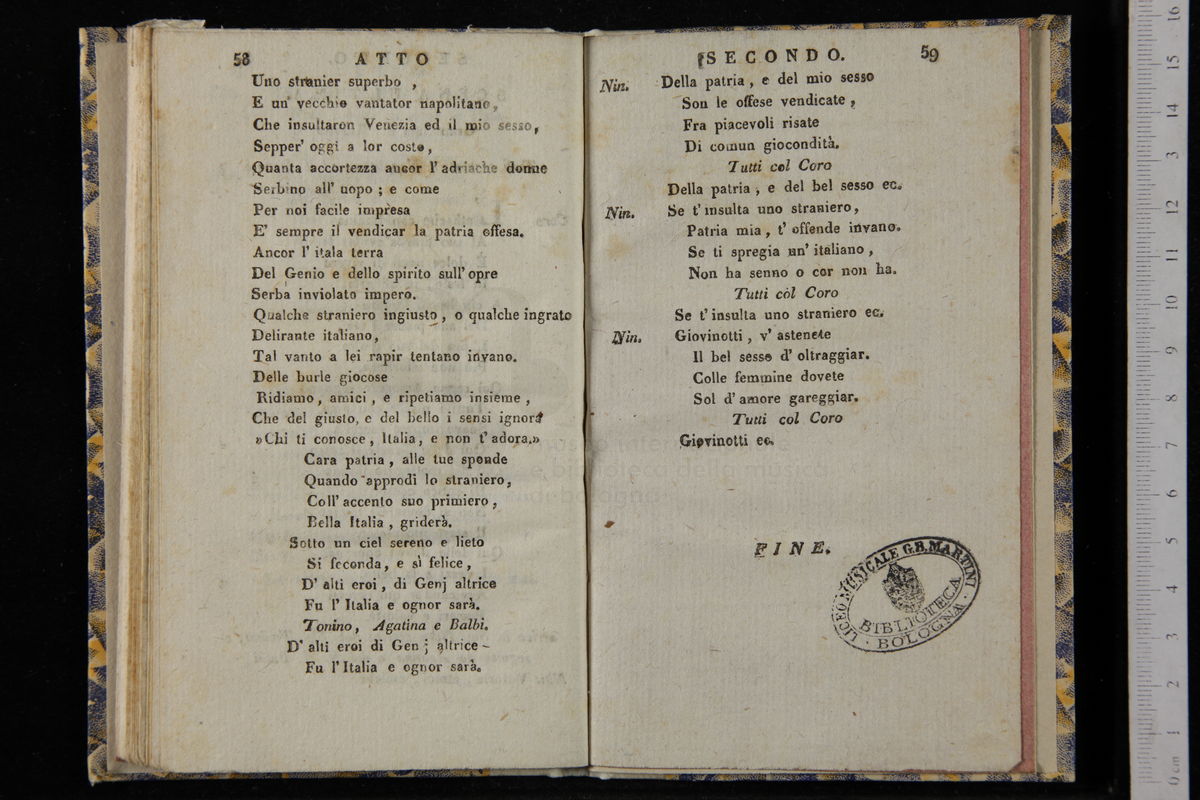 58 ATTO
Uno stranier superbo ,
E un' vecchio vantator napolitano,
Che insultaron Venezia ed il mio sesso,
Sepper' oggi a lor costo,
Quanta accortezza ancor l' adriache donne
Serbino all' uopo ; e come
Per noi facile impresa
E' sempre il vendicar la patria offesa.
Ancor l' itala terra
Del Genio e dello spirito sull' opre
Serba inviolato impero.
Qualche straniero ingiusto , o qualche ingrato
Delirante italiano,
Tal vanto a lei rapir tentano invano.
Delle burle giocose
Ridiamo, amici , e ripetiamo insieme ,
Che del giusto, e del bello i sensi ignora
»Chi ti conosce, Italia, e non t' adora.»
Cara patria , alle tue sponde
Quando approdi lo straniero,
Coll' accento suo primiero,
Bella Italia , griderà.
Sotto un ciel sereno e lieto
Sì feconda, e sì felice,
D' alti eroi, di Genj altrice
Fu l' Italia e ognor sarà.
Tonino, Agatina e Balbi.
D' alti eroi di Genj altrice
Fu l'Italia e ognor sarà.
SECONDO. 59
Nin. Della patria , e del mio sesso
Son le offese vendicate ,
Fra piacevoli risate
Di comun giocondità.
Tutti col Coro
Della patria, e del bel sesso ec.
Nin. Se t' insulta uno straniero,
Patria mia, t' offende invano.
Se ti spregia un' italiano ,
Non ha senno o cor non ha.
Tutti col Coro
Se t' insulta uno straniero ec.
Nin. Giovinotti , v' astenete
Il bel sesso d' oltraggiar.
Colle femmine dovete
Sol d' amore gareggiar.
Tutti col Coro
Giovinotti ec.
FINE.
LICEO MUSICALE G.B. MARTINI
BIBLIOTECA
BOLOGNA